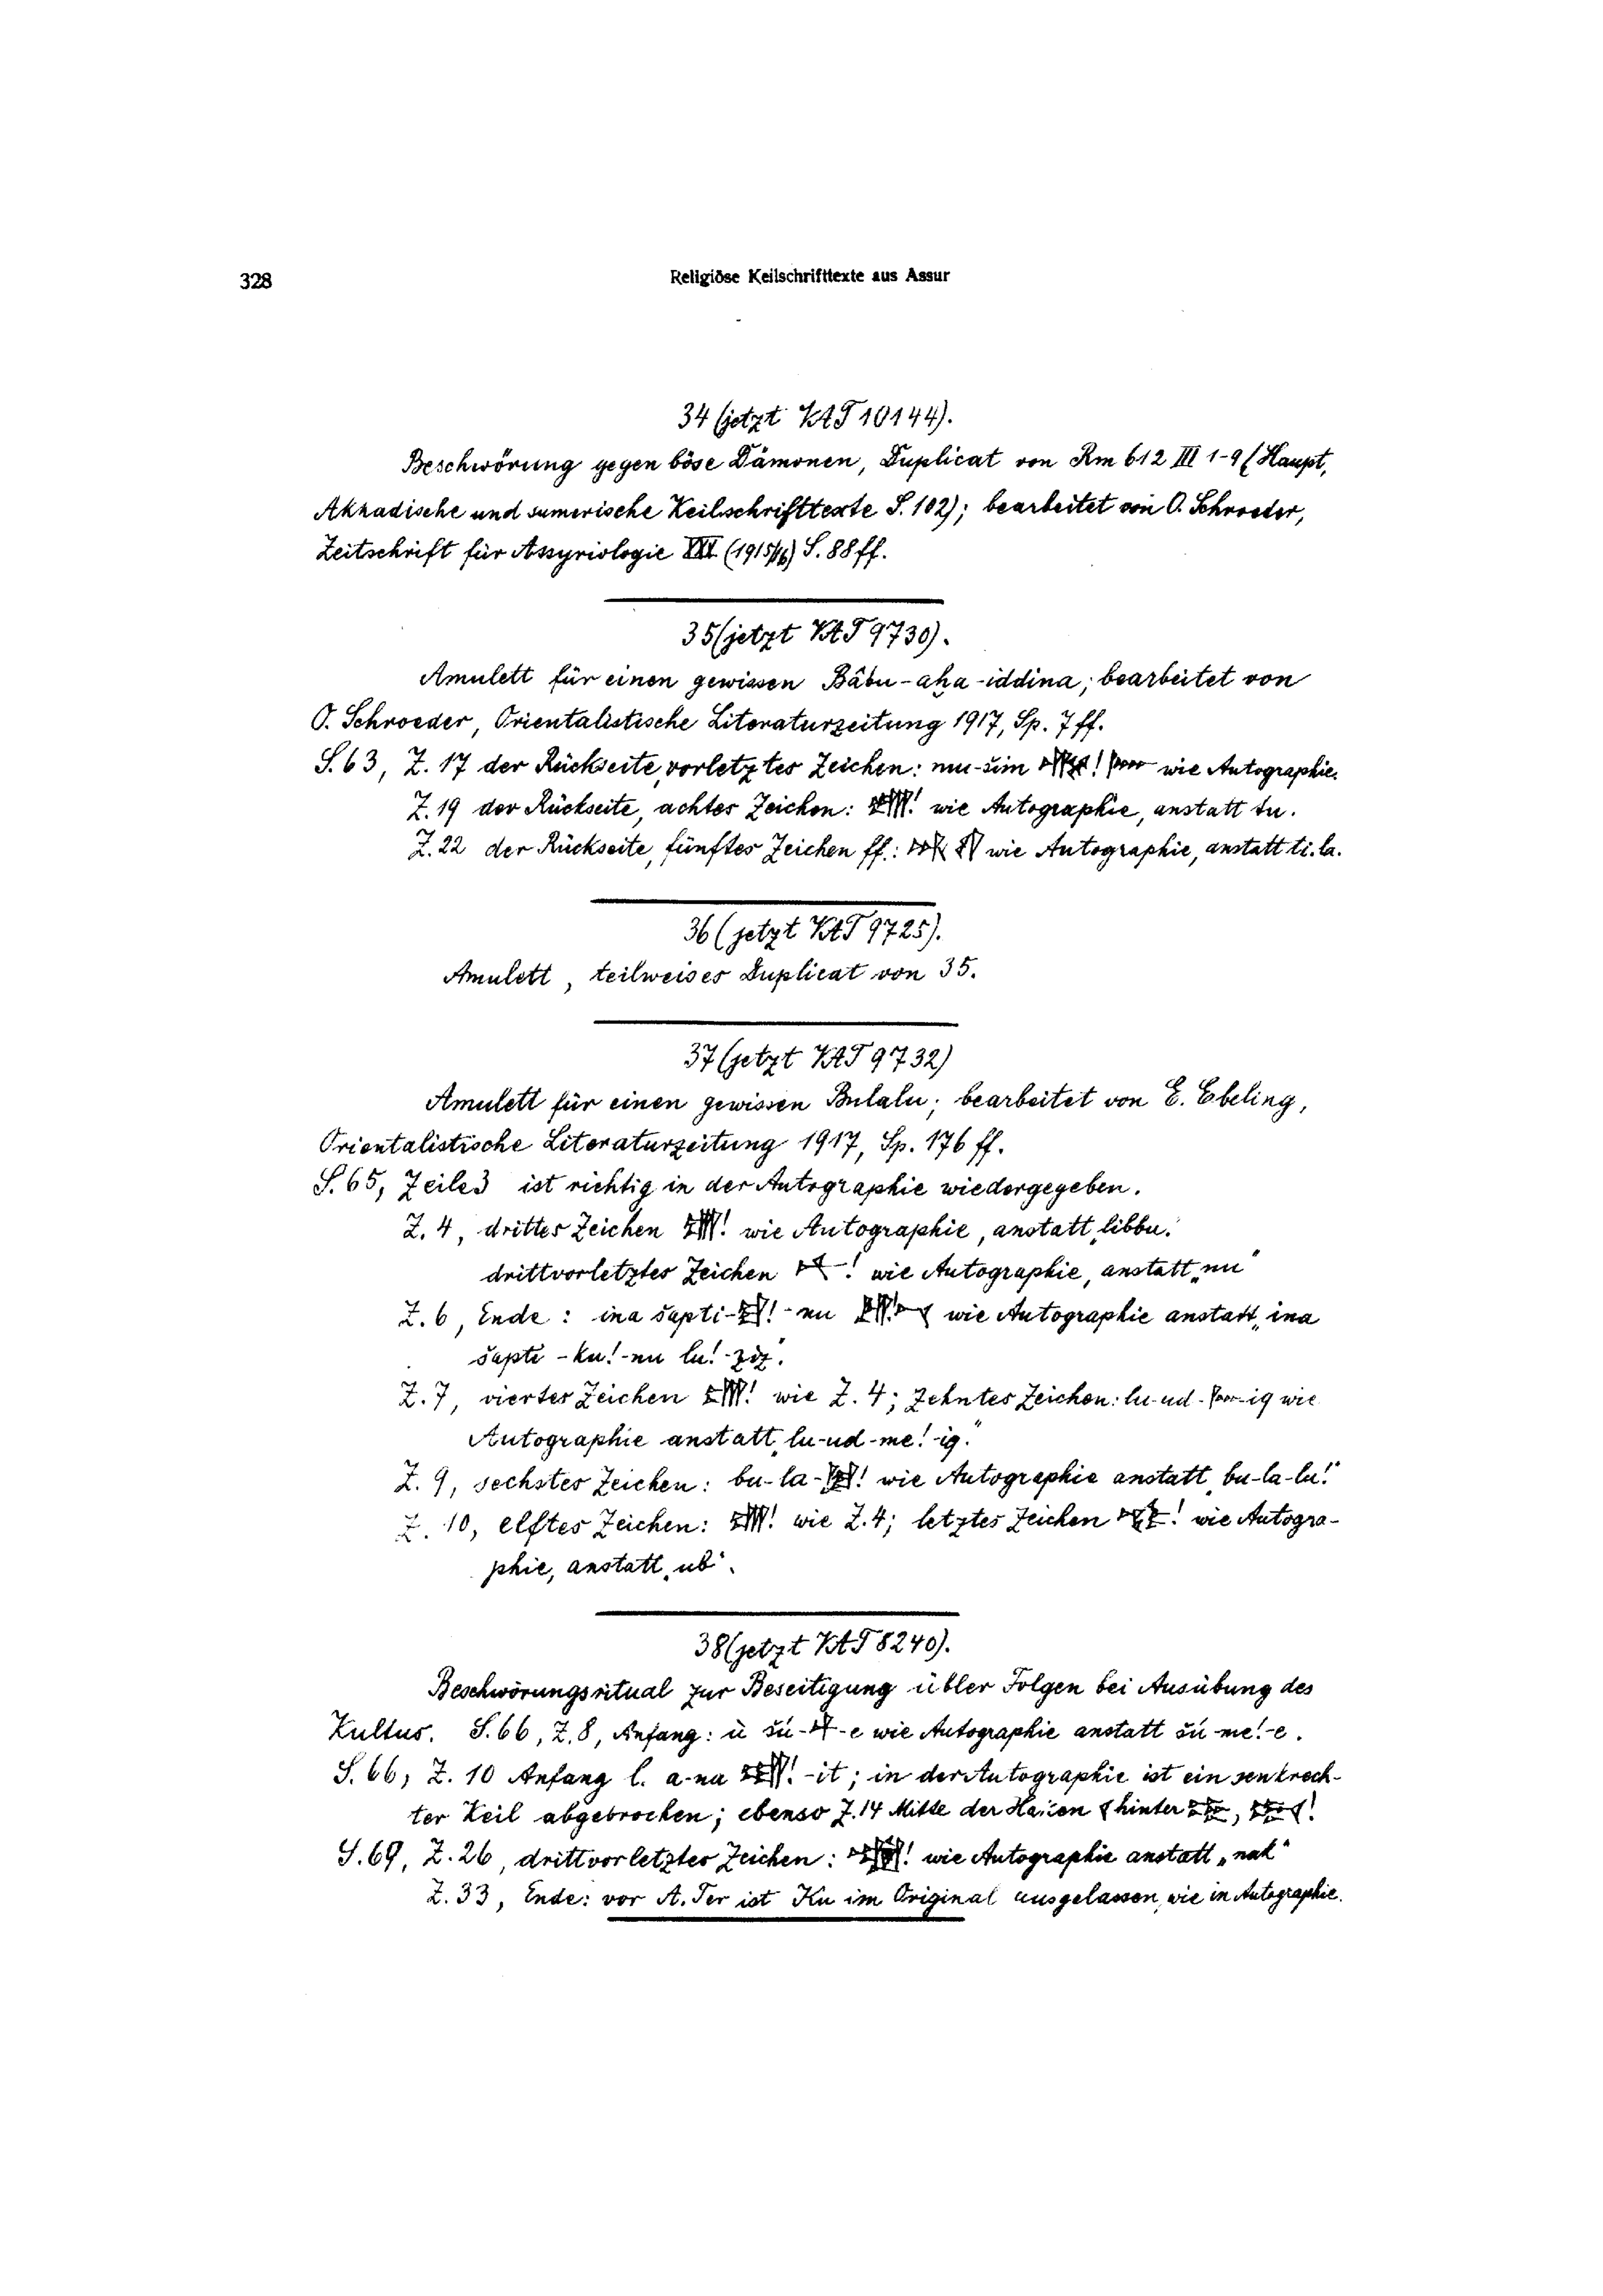 328
Religiöse Keilschrifttexte aus Assur
34 (jetzt VAT 10144).
Beschwörung gegen böse Dämonen, Duplicat von Rm 612 III 1-9 (Haupt,
Akkadische und sumerische Keilschrifttexte S. 102); bearbeitet von O. Schroeder,
Zeitschrift für Assyriologie XXX (1915/16) S. 88 ff.
35 (jetzt VAT 9730).
Amulett für einen gewissen Bâbu-aḫa-iddina; bearbeitet von
O. Schroeder, Orientalistische Literaturzeitung 1917, Sp. 7 ff.
S. 63, Z. 17 der Rückseite, vorletztes Zeichen: mu-šim ! wie Autographie.
Z. 19 der Rückseite, achtes Zeichen: ! wie Autographie, anstatt tu.
Z. 22 der Rückseite, fünftes Zeichen ff.: wie Autographie, anstatt ti.la.
36 (jetzt VAT 9725).
Amulett, teilweises Duplicat von 35.
37 (jetzt VAT 9732)
Amulett für einen gewissen Bulalu; bearbeitet von E. Ebeling,
Orientalistische Literaturzeitung 1917, Sp. 176 ff.
S. 65, Zeile 3 ist richtig in der Autographie wiedergegeben.
Z. 4, drittes Zeichen ! wie Autographie, anstatt „libbu."
drittvorletztes Zeichen ! wie Autographie, anstatt „nu"
Z. 6, Ende: ina šapti-!-nu ! wie Autographie anstatt „ina
šapti-ku!-nu lu!-ziz".
Z. 7, viertes Zeichen ! wie Z. 4; zehntes Zeichen: lu-ud--ig wie
Autographie anstatt „lu-ud-me!-ig."
Z. 9, sechstes Zeichen: bu-la-! wie Autographie anstatt „bu-la-lu!"
Z. 10, elftes Zeichen: ! wie Z. 4; letztes Zeichen ! wie Autogra-
phie, anstatt „ub".
38 (jetzt VAT 8240).
Beschwörungsritual zur Beseitigung übler Folgen bei Ausübung des
Kultus. S. 66, Z. 8, Anfang: ù šú--e wie Autographie anstatt šú-me!-e.
S. 66, Z. 10 Anfang l. a-na !-it; in der Autographie ist ein senkrech-
ter Keil abgebrochen; ebenso Z. 14 Mitte der Haken hinter , !
S. 69, Z. 26, drittvorletztes Zeichen: ! wie Autographie anstatt „nak"
Z. 33, Ende: vor A.Ter ist Ku im Original ausgelassen, wie in Autographie.